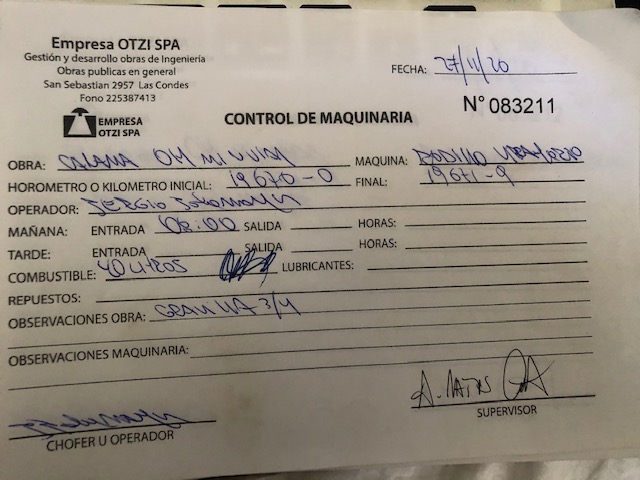 Empresa OTZI SPA
Gestión y desarrollo obras de Ingeniería
Obras publicas en general
San Sebastian 2957 Las Condes
Fono 225387413
FECHA: 27/11/20
EMPRESA
OTZI SPA
CONTROL DE MAQUINARIA
N° 083211
OBRA: MAQUINA: RODILLO
HOROMETRO O KILOMETRO INICIAL: 19670-0 FINAL: 19671-9
OPERADOR: SERGIO
MAÑANA: ENTRADA 08:00 SALIDA HORAS:
TARDE: ENTRADA SALIDA HORAS:
COMBUSTIBLE: 40 LITROS LUBRICANTES:
REPUESTOS:
OBSERVACIONES OBRA: GRAVILLA 3/4
OBSERVACIONES MAQUINARIA:
CHOFER U OPERADOR
SUPERVISOR